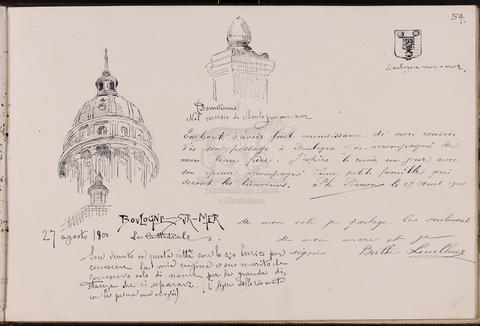 54.
Boulogne-sur-mer
Domitianus
Nel museo di Boulogne sur mer
Enchanté d'avoir fait connaissance de mon cousin
à son passage à Boulogne accompagné de
mon beau père. J'espère le revoir un jour avec
son épouse accompagné d'une petite famille qui
seront les bienvenus. Ph.
le 27 Aout 1900
BOULOGNE-SUR-MER
27 agosto 1900
La Cattedrale
De mon coté je partage les sentiments
de mon mari et je
signe Berthe
Son venuto in questa città con lo zio Enrico per
conoscere la mia cugina e suo marito che
conoscevo solo di nome per la grande di-
stanza che ci separava.